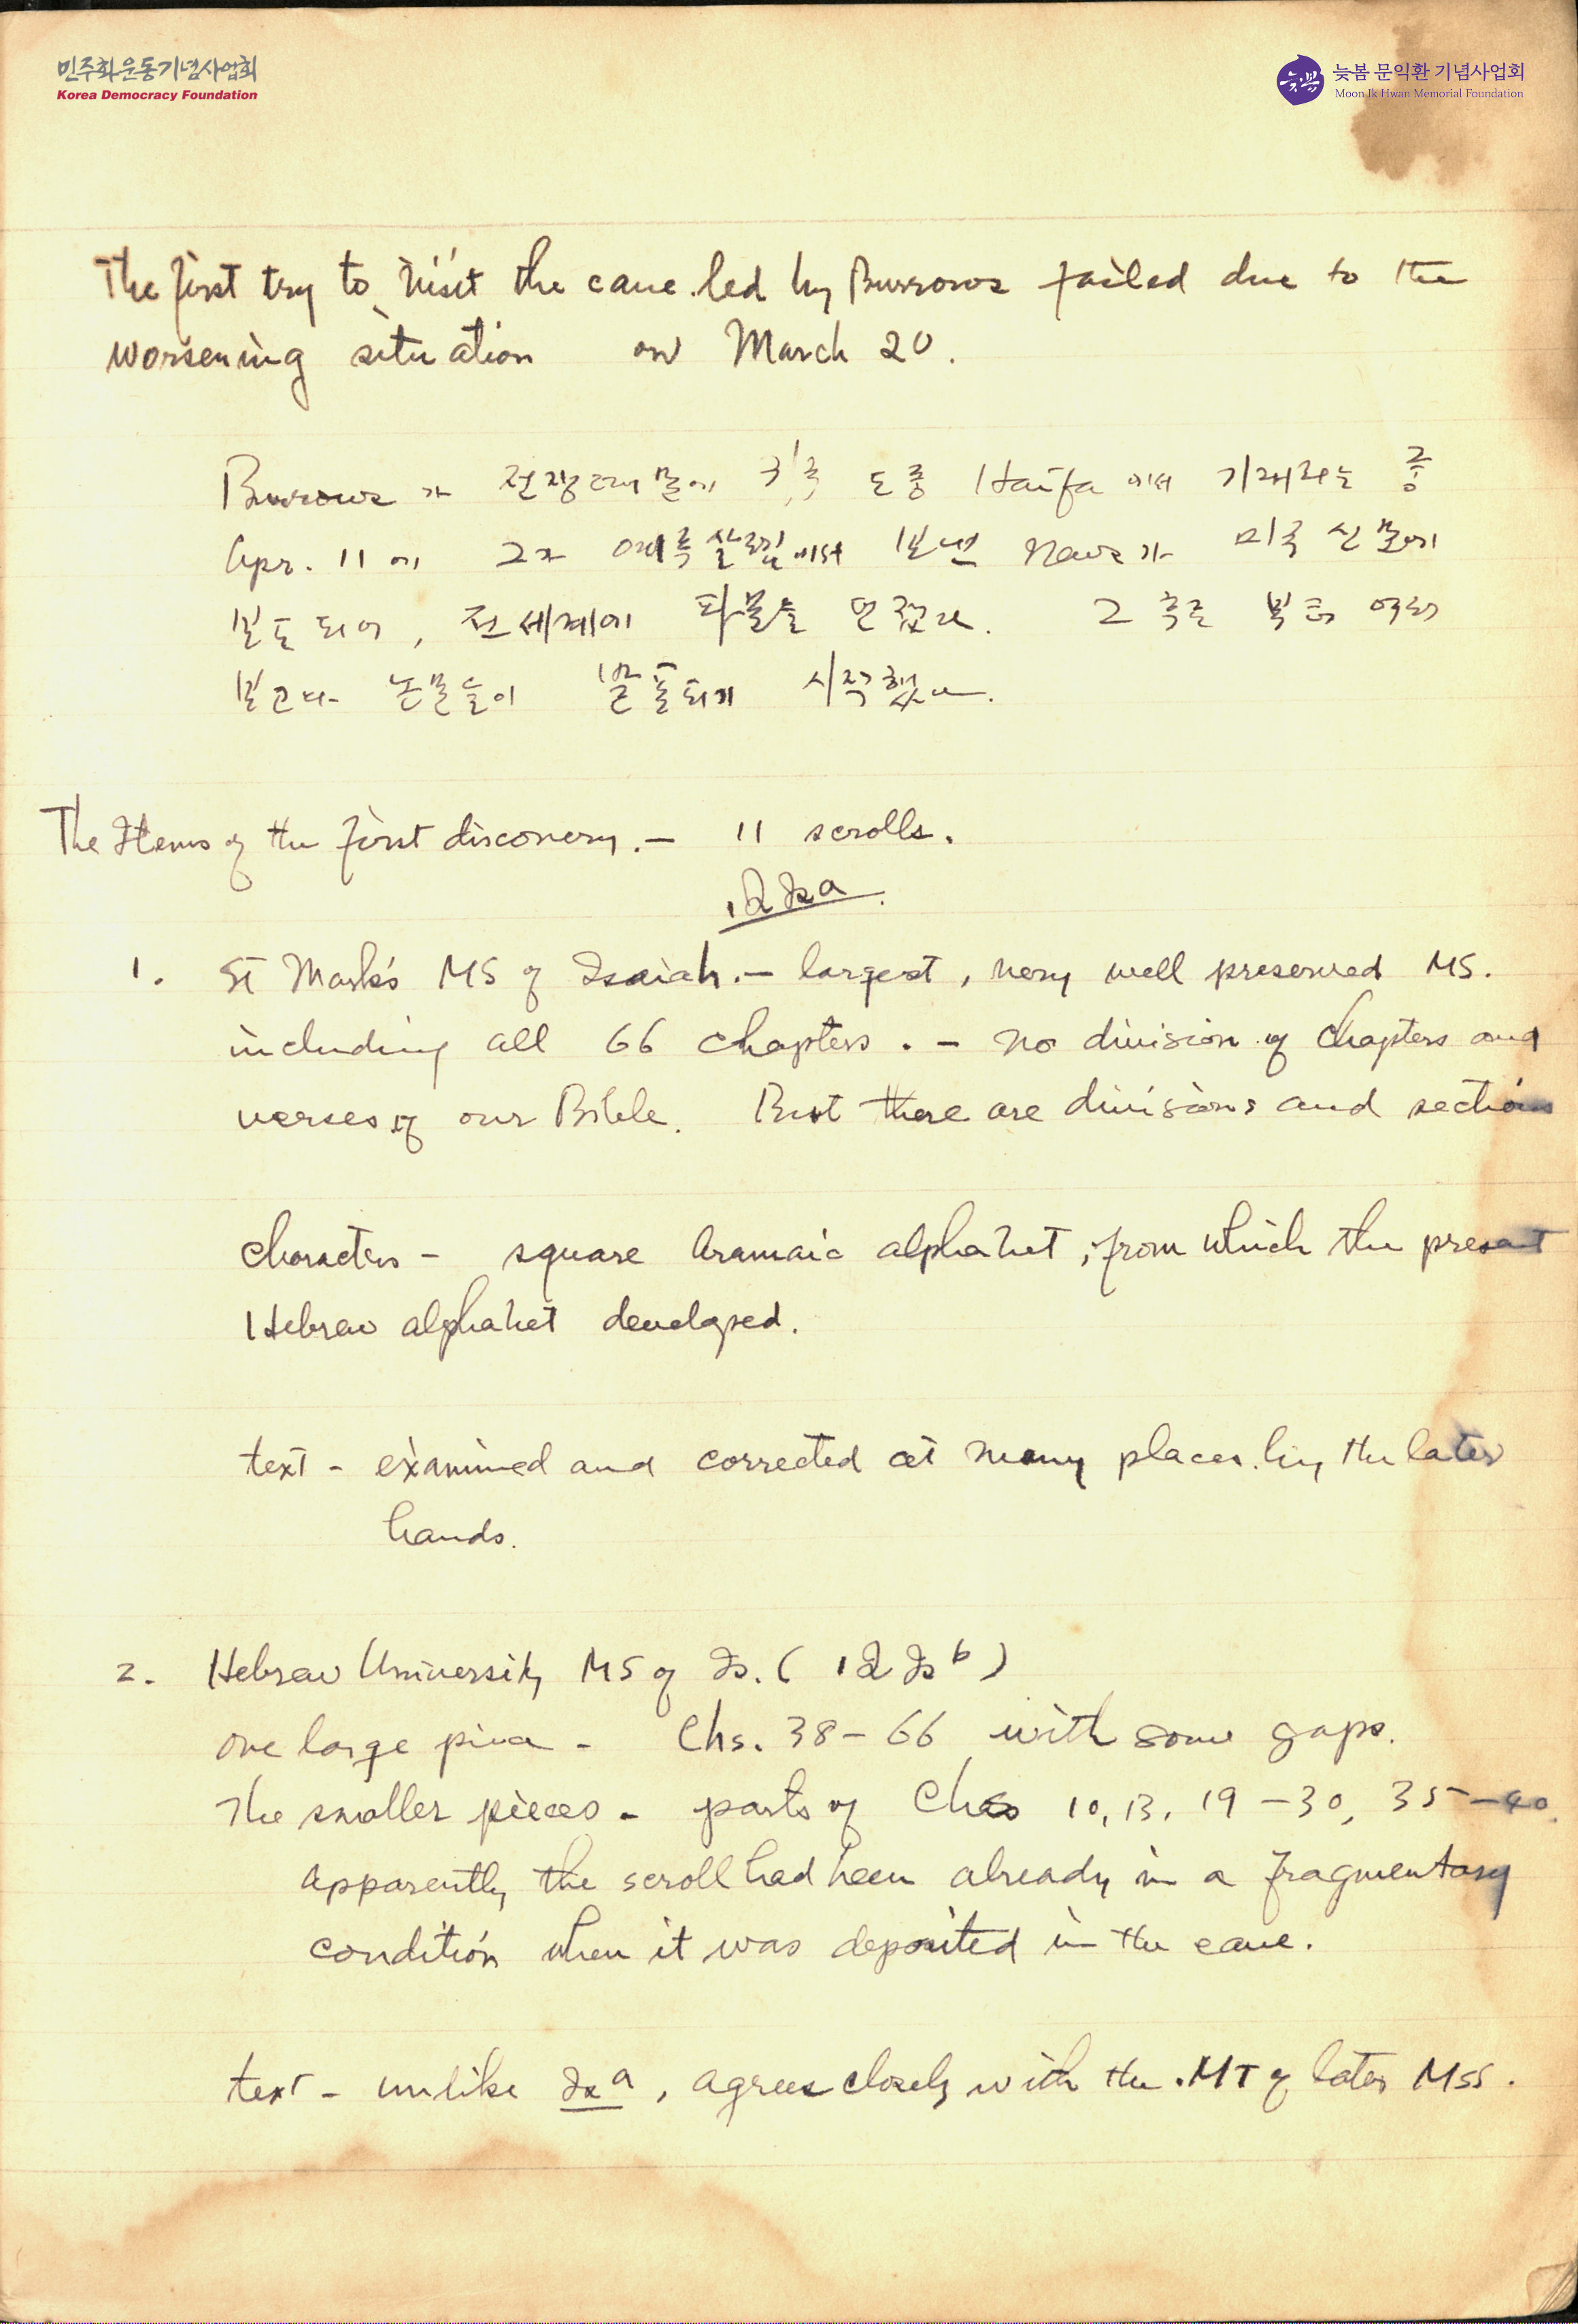 민주화운동기념사업회
Korea Democracy Foundation
늦봄
늦봄 문익환 기념사업회
Moon Ik Hwan Memorial Foundation
The first try to visit the cave led by Burrows failed due to the
worsening situation on March 20.
Burrows가 전쟁때문에 귀국 도중 Haifa에서 기재하는 중
Apr. 11에 그가 예루살렘에서 보낸 News가 미국 신문에
보도되어, 전세계에 파문을 던졌다. 그 후로 부터 여러
보고와 논문들이 발표되기 시작했다.
The Items of the first discovery. – 11 scrolls.
1QIsa.
1. St Mark's MS of Isaiah. – largest, very well preserved MS.
including all 66 chapters. – no division of chapters and
verses of our Bible. But there are divisions and sections
characters – square Aramaic alphabet, from which the present
Hebrew alphabet developed.
text – examined and corrected at many places by the later
hands.
2. Hebrew University MS of Is. (1QIsb)
one large piece – Chs. 38–66 with some gaps.
The smaller pieces – parts of Chs 10, 13, 19–30, 35–40.
Apparently the scroll had been already in a fragmentary
condition when it was deposited in the cave.
text – unlike Isa, agrees closely with the MT of later MSS.